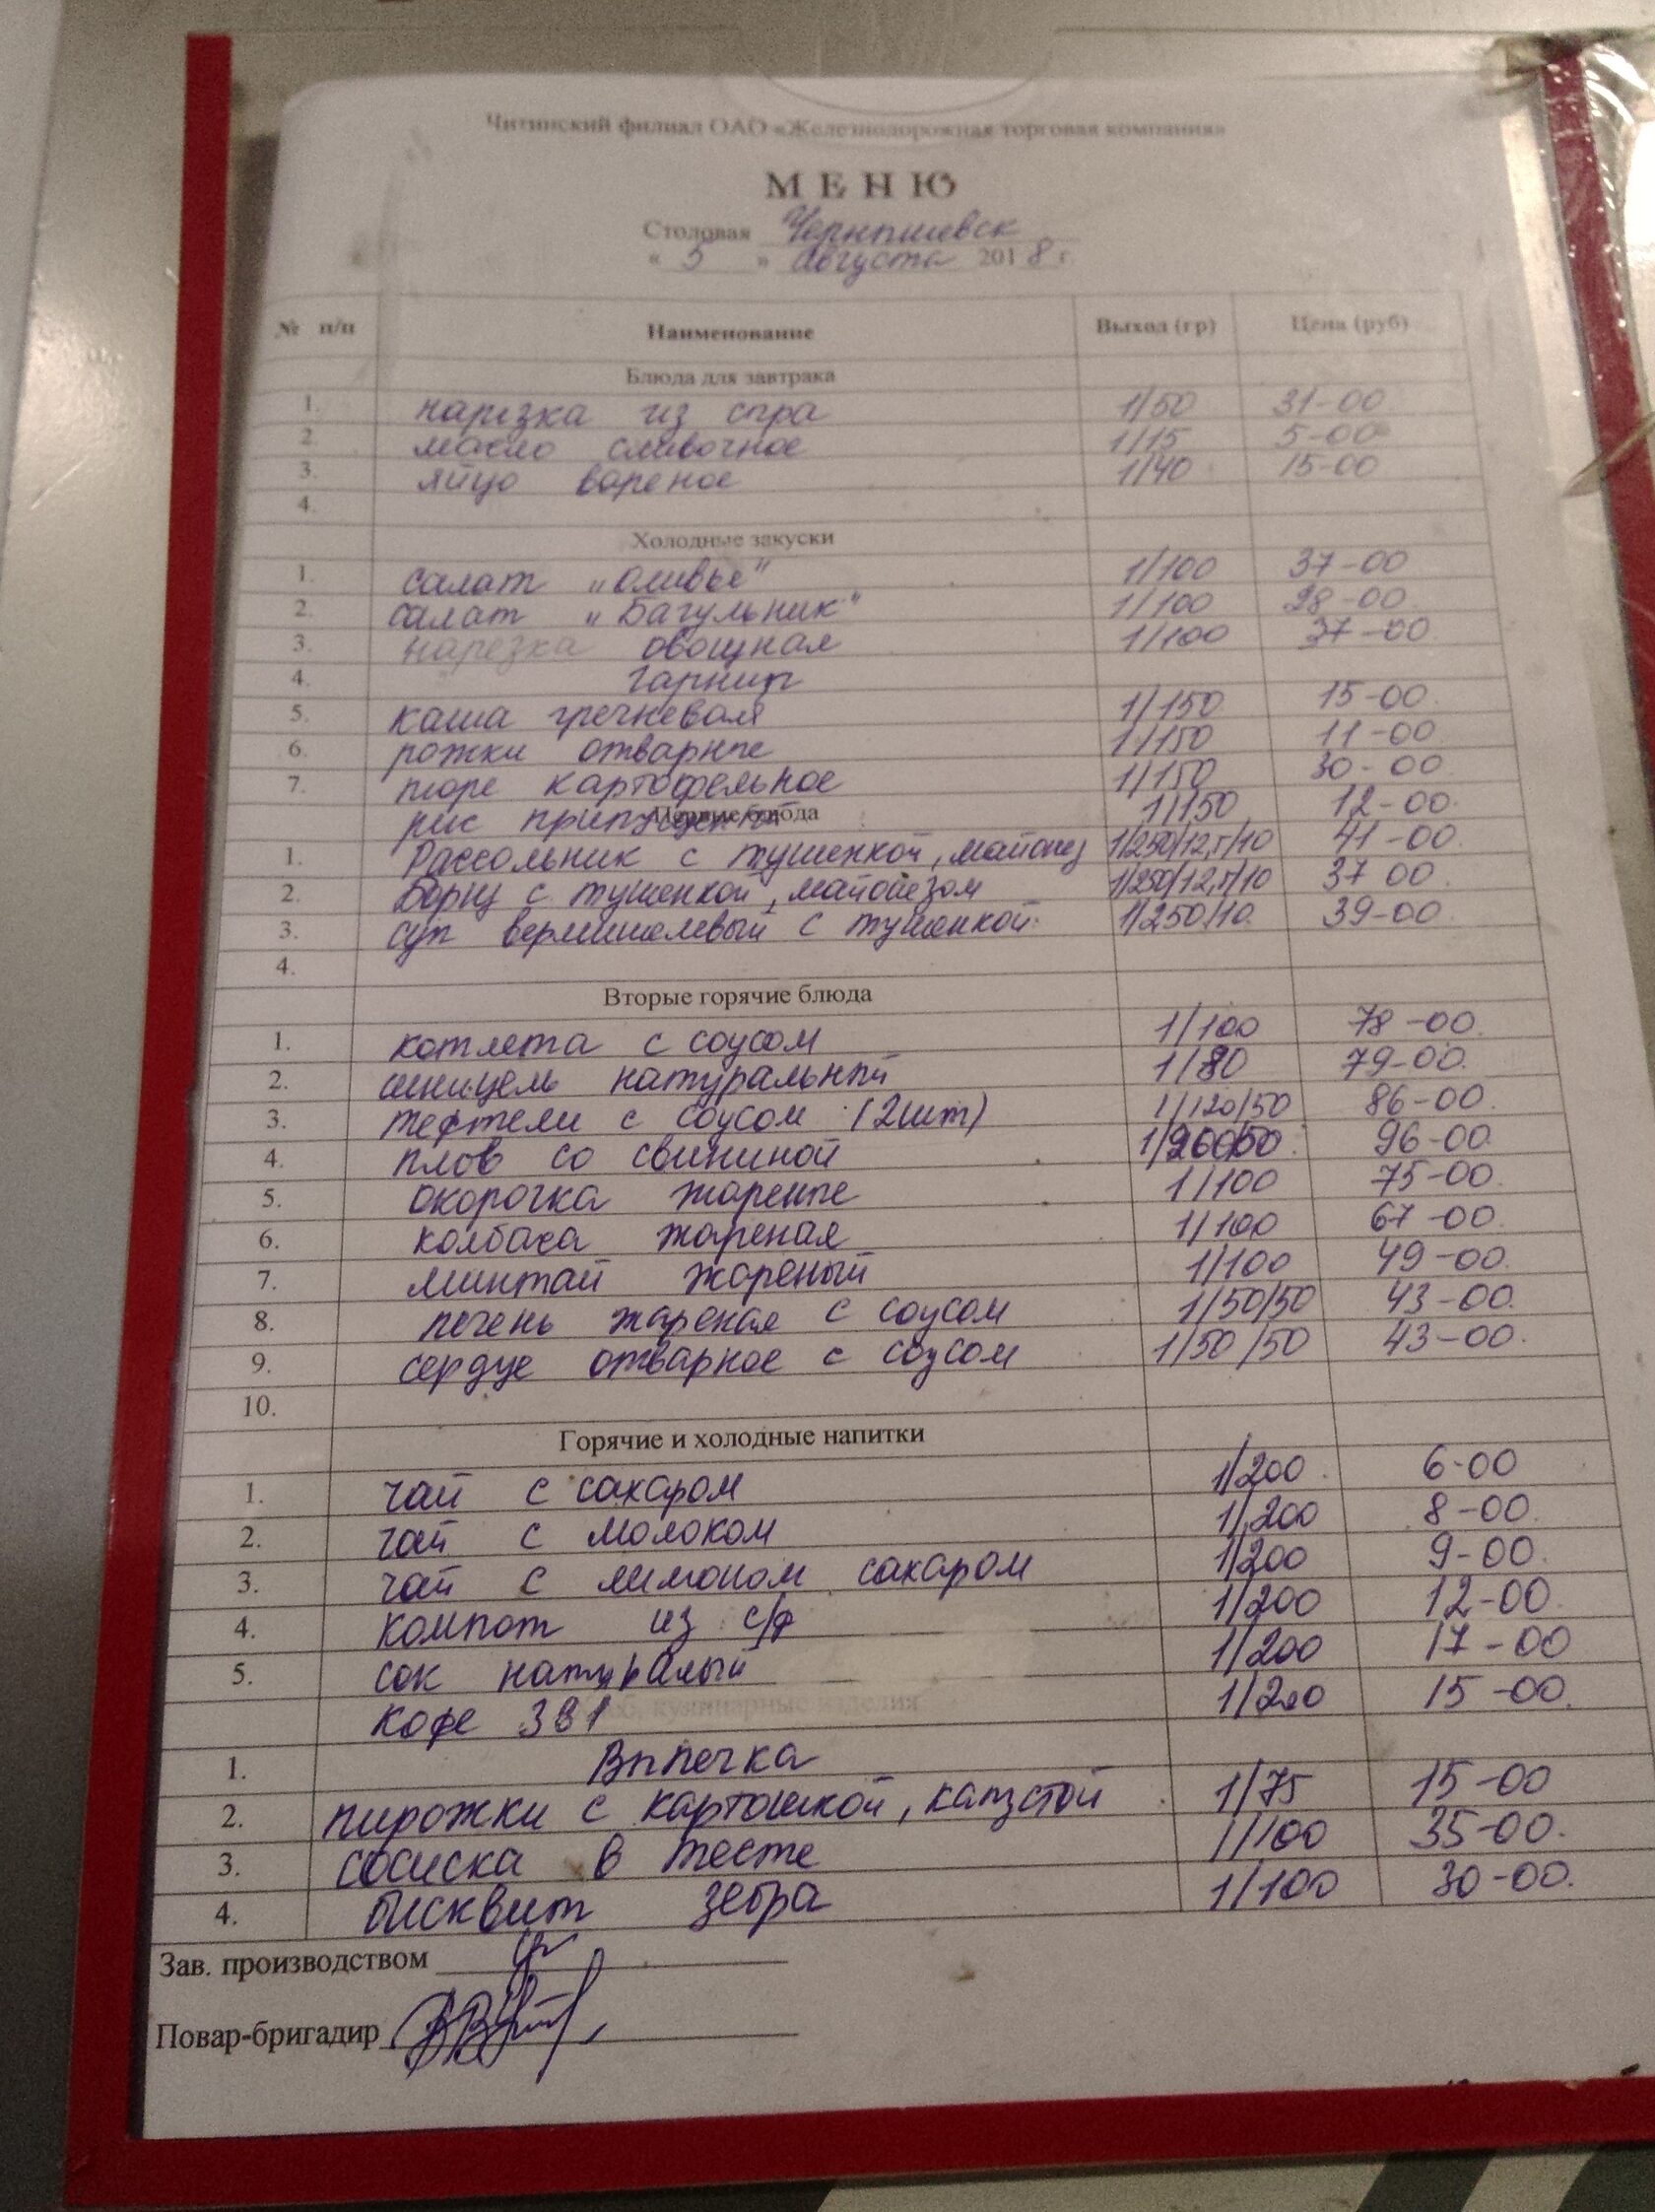 Читинский филиал ОАО «Железнодорожная торговая компания»
МЕНЮ
Столовая Чернышевск
« 5 » августа 2018 г.
№ п/п Наименование Выход (гр) Цена (руб)
Блюда для завтрака
1. нарезка из сыра 1/50 31-00
2. масло сливочное 1/15 5-00
3. яйцо вареное 1/40 15-00
4.
Холодные закуски
1. салат „Оливье" 1/100 37-00
2. салат „Багульник" 1/100 28-00
3. нарезка овощная 1/100 37-00
4. гарнир
5. каша гречневая 1/150 15-00
6. рожки отварные 1/150 11-00
7. пюре картофельное 1/150 30-00
рис припущен 1/150 12-00
Первые блюда
1. Рассольник с тушенкой, майонез 1/250/12,5/10 41-00
2. борщ с тушенкой, майонезом 1/250/12,5/10 37 00
3. суп вермишелевый с тушенкой 1/250/10 39-00
4.
Вторые горячие блюда
1. котлета с соусом 1/100 78-00
2. шницель натуральный 1/80 79-00
3. тефтели с соусом (2шт) 1/120/50 86-00
4. плов со свининой 96-00
5. окорочка жареные 1/100 75-00
6. колбаса жареная 1/100 67-00
7. минтай жареный 1/100 49-00
8. печень жареная с соусом 1/50/50 43-00
9. сердце отварное с соусом 1/50/50 43-00
10.
Горячие и холодные напитки
1. чай с сахаром 1/200 6-00
2. чай с молоком 1/200 8-00
3. чай с лимоном сахаром 1/200 9-00
4. компот из с/ф 1/200 12-00
5. сок натуралый 1/200 17-00
кофе 3в1 1/200 15-00
кулинарные изделия
1. Выпечка
2. пирожки с картошкой, капустой 1/75 15-00
3. сосиска в тесте 1/100 35-00
4. бисквит зебра 1/100 30-00
Зав. производством
Повар-бригадир